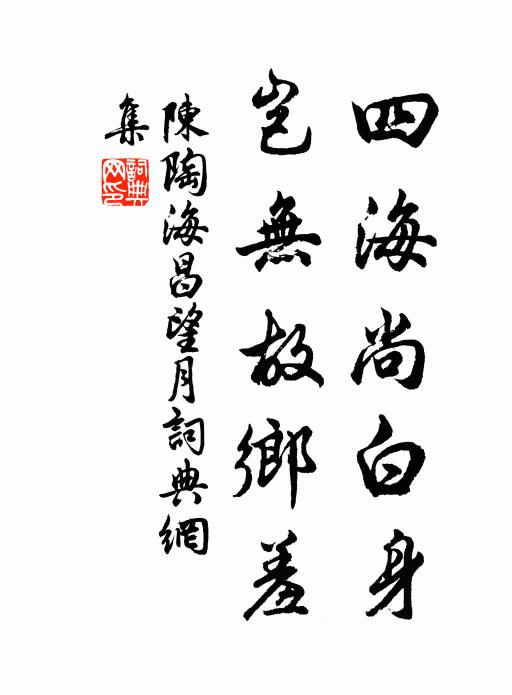 四海尚白身
豈無故鄉羞
陳陶海昌望月詞典網
集
詞典
网印